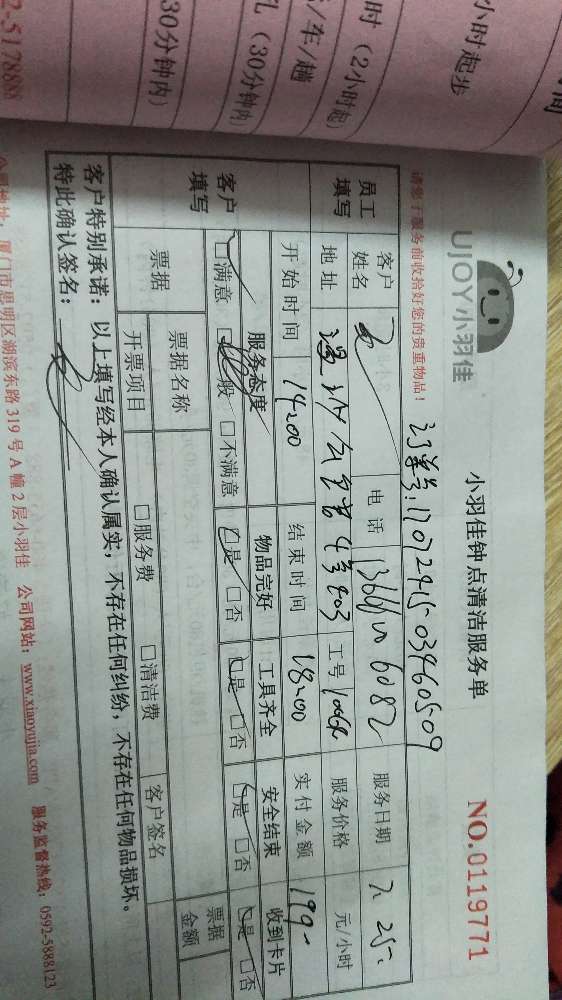 小时起步
时（2小时起）
/车/趟
（30分钟内）
30分钟内）
2-5178888
请您于服务前收拾好您的贵重物品！
UJOY小羽佳
小羽佳钟点清洁服务单
NO.0119771
订单号:1707241503460509
员工填写
客户姓名
电话
服务日期 7. 25.
地址
4号403
工号
服务价格
元/小时
开始时间 14:00
结束时间 18:00
实付金额 199-
客户填写
服务态度 物品完好 工具齐全 安全结束 收到卡片
□满意 □一般 □不满意 □是 □否 □是 □否 □是 □否 □是 □否
票据
票据名称
票据金额
开票项目 □服务费 □清洁费 客户签名
客户特别承诺：以上填写经本人确认属实，不存在任何纠纷，不存在任何物品损坏。
特此确认签名：
公司地址：厦门市思明区湖滨东路319号A幢2层小羽佳 公司网站：www.xiaoyujia.com 服务监督热线：0592-5888123